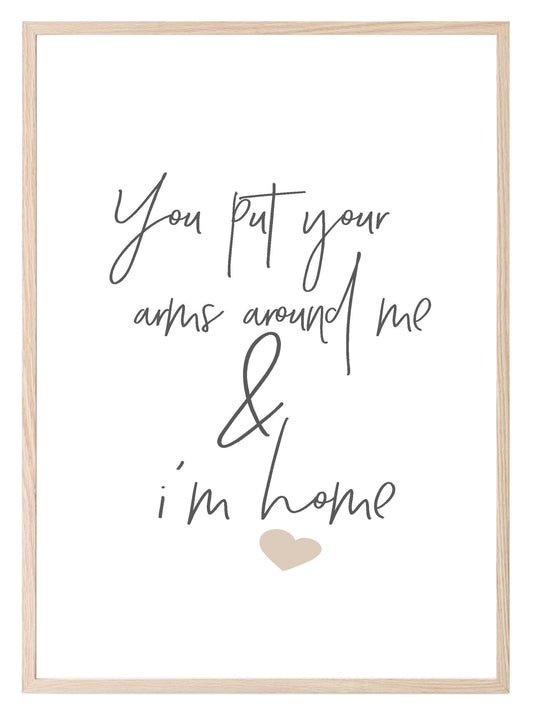 You put your
arms around me
&
i'm home